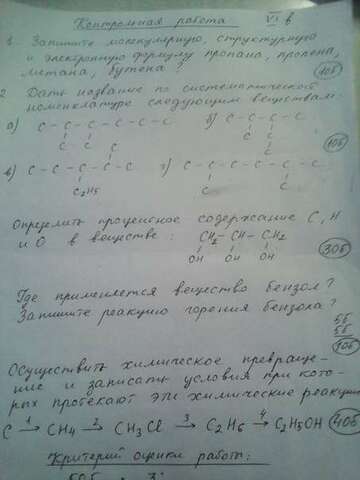 Контрольная работа VI в
1. Запишите молекулярную, структурную
и электронную формулу пропана, пропена,
метана, бутена?
10б
2. Дать название по систематической
номенклатуре следующим веществам:
а) C - C - C - C - C - C б) C - C - C - C - C
C C C
C C
10б
в) C - C - C - C - C г) C - C - C - C - C - C
C2H5 C C
C
Определить процентное содержание C, H
и O в веществе: CH2 - CH - CH2
OH OH OH
30б
Где применяется вещество бензол?
Запишите реакцию горения бензола?
5б
5б
10б
Осуществить химическое превраще-
ние и записать условия при кото-
рых протекают эти химические реакции
C 1→ CH4 2→ CH3Cl 3→ C2H6 4→ C2H5OH
40б
Критерий оценки работы: